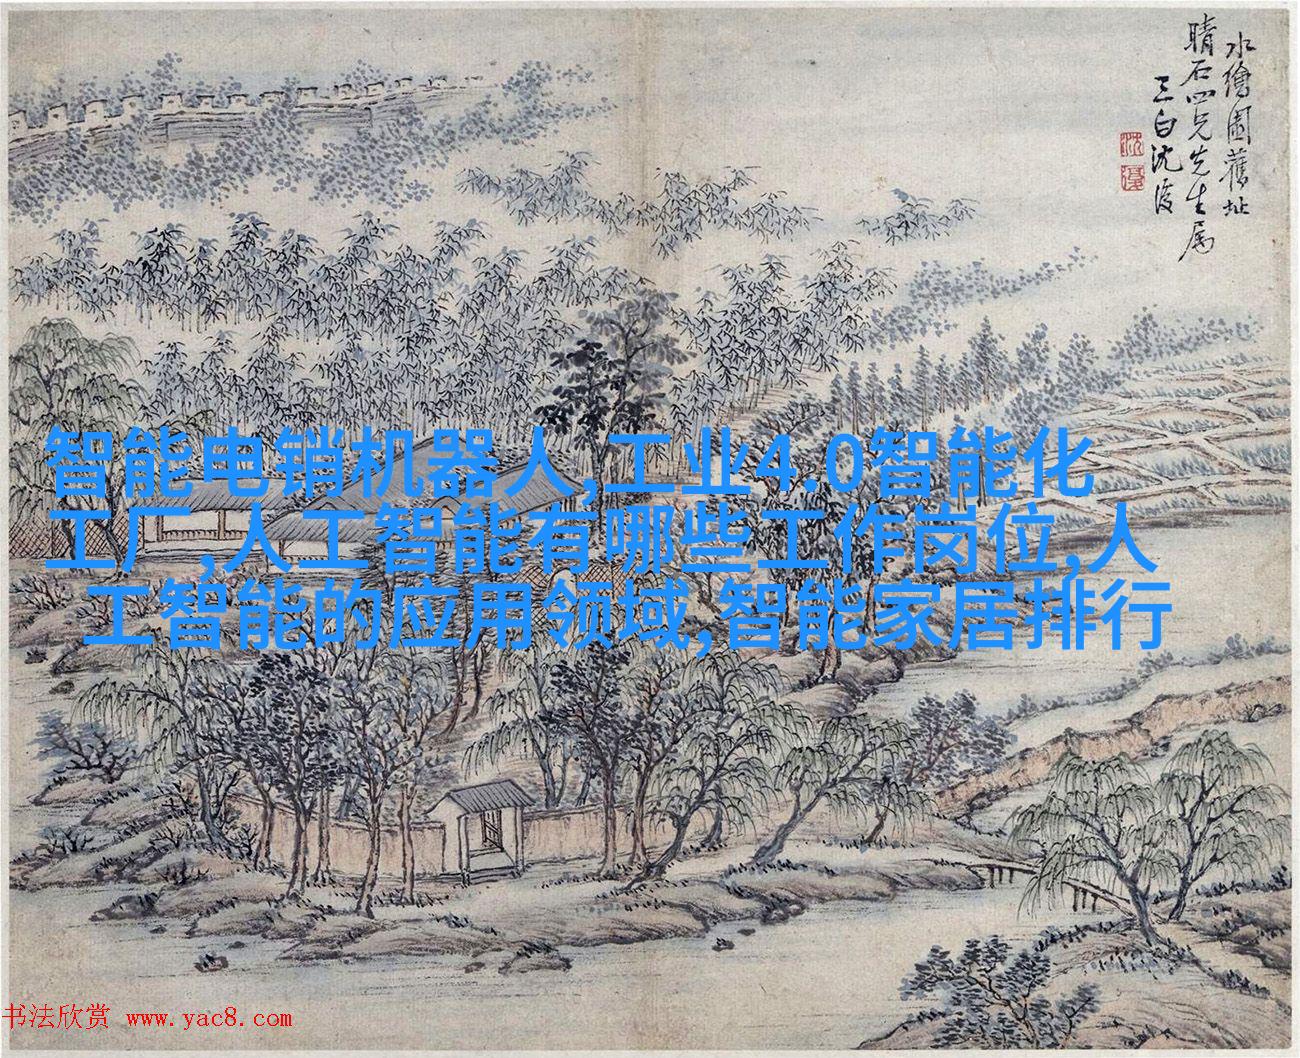 水繪園舊址
晴石四兄先生属
三白沈复
沈
復
智能电销机器人,工业4.0智能化
工厂,人工智能有哪些工作岗位,人
工智能的应用领域,智能家居排行
书法欣赏 www.yac8.com